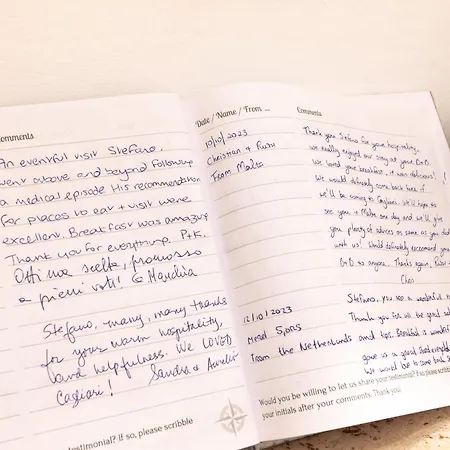 Comments
An eventful visit Stefano.
went above and beyond following
a medical episode His recommendation
for places to eat + visit were
excellent. Breakfast was amazing
Thank you for everything. P+K.
Ottima scelta, promosso
a pieni voti!
Stefano, many, many thanks
for your warm hospitality,
and helpfulness. We LOVED
Cagliari! Sandra &
testimonial? If so, please scribble
Date / Name / From ...
10/10/2023
Christian & Ruth
From Malta
12/10/2023
from the Netherlands
Comments
Thank you Stefano for your hospitality,
we really enjoyed our stay at your B&B.
We loved your breakfast, it was delicious!
We would definitely come back here if
we'll be coming to Cagliari. We'll hope to
see you in Malta one day and we'll give
you plenty of advices as same as you did
with us! Would definitely recommend your
B&B to anyone. Thanks again,
Stefano, you are a wonderful
Thank you for all the good
and tips. Breakfast is wonderful
gave us a good
We would love to come back
Would you be willing to let us share your testimonial? If so, please scribble
your initials after your comments. Thank you.